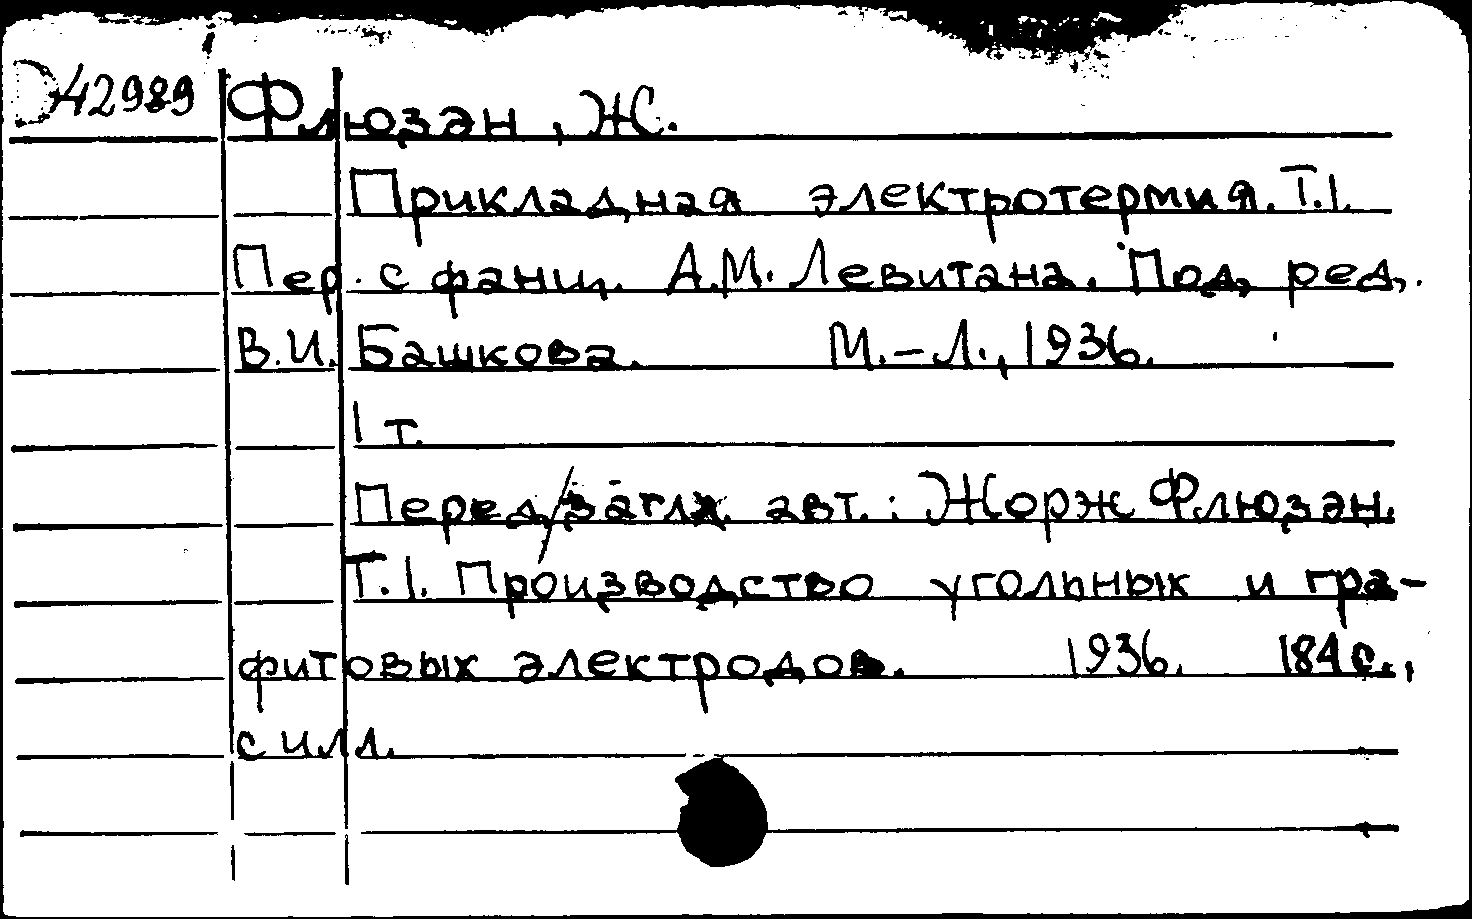 D42989 Флюзан, Ж.
Прикладная электротермия. Т.1.
Пер. с фанц. А.М. Левитана. Под ред.
В.И. Башкова. М.-Л., 1936.
1 т.
Перед загл. авт.: Жорж Флюзан.
Т.1. Производство угольных и гра-
фитовых электродов. 1936. 184 с.,
с илл.